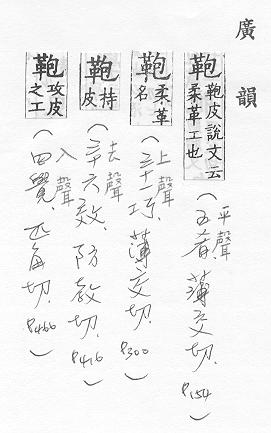 廣韻
鞄 鞄皮說文云柔革工也
(平聲 五肴 薄交切. P154)
鞄 柔革名
(上聲 三十一巧. 薄交切. P300)
鞄 持皮
(去聲 三十六效. 防教切. P416)
鞄 攻皮之工
(入聲 四覺. 匹角切. P466)